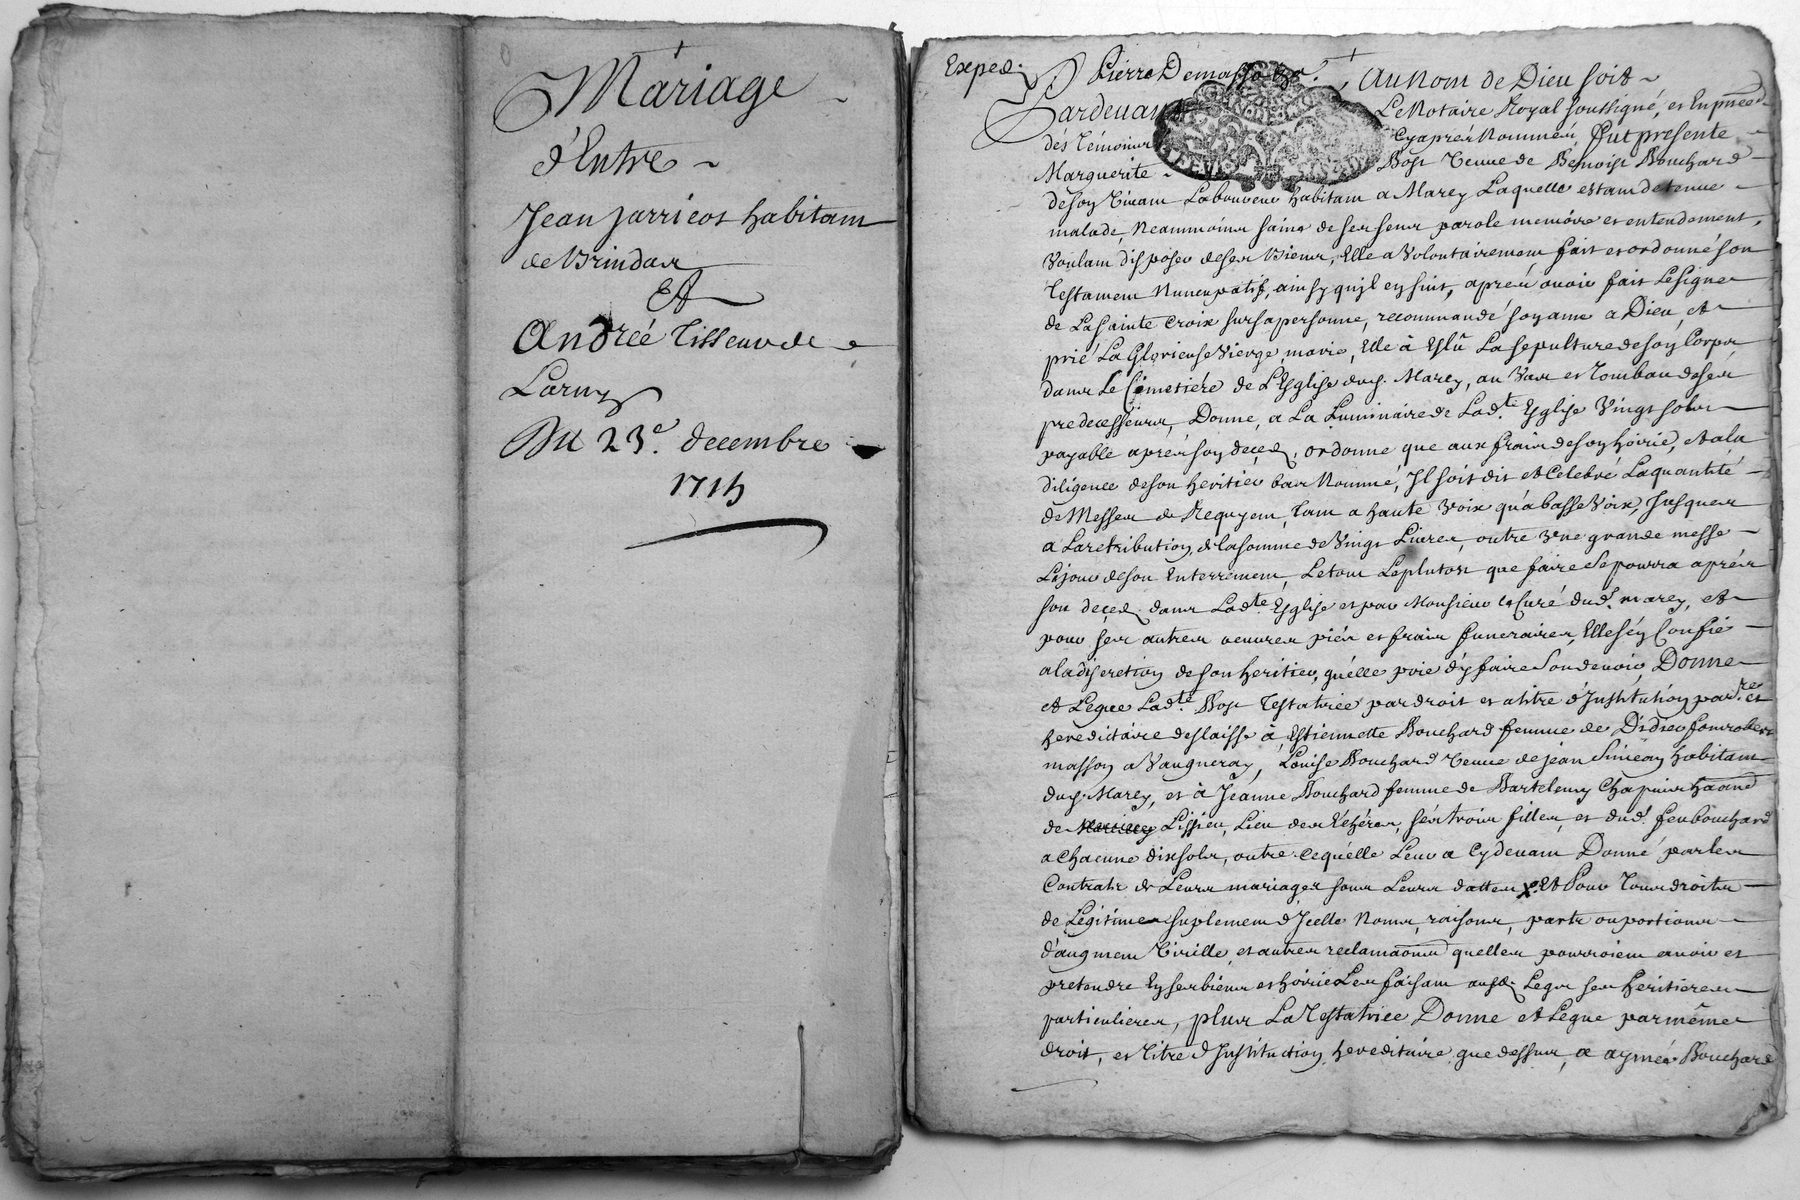 Mariage
d'Entre
Jean Jarricot habitant
de Brindas
Et
Andreé Tisseur de
Larny
Du 23e. decembre
1715
Exped.
Pardevant
Au Nom de Dieu soit
Le Notaire Royal soussigné, et En pnce
dés Témoins
Cyaprés Nommés, fut presente
Marguerite
Bost veuve de Benoist Bouchard
de son vivant Laboureur habitant a Marcy Laquelle estant detenue
malade, Neammoins saine de ses sens parole memoire et entendement,
Voulant disposer de ses Biens, Elle a Volontairement fait et ordonné son
Testament Nuncupatif, ainsy qu'jl en suit, aprés avoir fait Le signe
de La sainte Croix sur sa personne, recommandé son ame a Dieu, et
prié La Glorieuse Vierge marie, Elle à Eslû La sepulture de son Corps
dans Le Cimetiére de L'Esglise dud. Marcy, au Vas et Tombau de ses
predecesseurs, Donne, a La Luminaire de Lad.te Esglise Vingt sols
payable aprés son deces, ordonne que aux frais de son hoirie, et a la
diligence de son heritier bas Nommé, Jl soit dit et Celebré La quantité
de Messes de Requyem, tant a haute Voix qu'a basse Voix, Jusques
a La retribution de la somme de Vingt Livres, outre Vne grande messe
Le jour de son Enterrement, Le tout Le plutost que faire se pourra aprés
son deces dans Lad.te Esglise et par Monsieur le Curé dud. marcy, et
pour ses autres oeuvres piés et frais funeraires, Elle s'en Confie
a la discretion de son heritier, qu'elle prie d'y faire son devoir, Donne
et Legue Lad.te Bost Testatrice par droit et a titre d'Institution par.re et
hereditaire deslaisse à Estiennette Bouchard femme de Didier
masson a Vaugneray, Louise Bouchard veuve de jean Siméan habitant
dud. Marcy, et à Jeanne Bouchard femme de Bartelemy Chapuis
de Lissieu, Lieu des Echéres, sés trois filles, et dud. feu bouchard
a Chacune dix sols, outre ce qu'elle Leur a Cy devant Donné par les
Contrats de Leurs mariages sous Leurs dattes X Et Pour Tous droits
de Legitime suplement d'Jcelle Noms, raisons, parts ou portions
d'augment Virille, et autres reclamaons quelles pourroient avoir et
pretendre En ses biens et hoirie Les faisant aud. Legs ses heritieres
particulieres, plus La Testatrice Donne et Legue par même
droit, et Titre d'Institution hereditaire que dessus, a aymé Bouchard